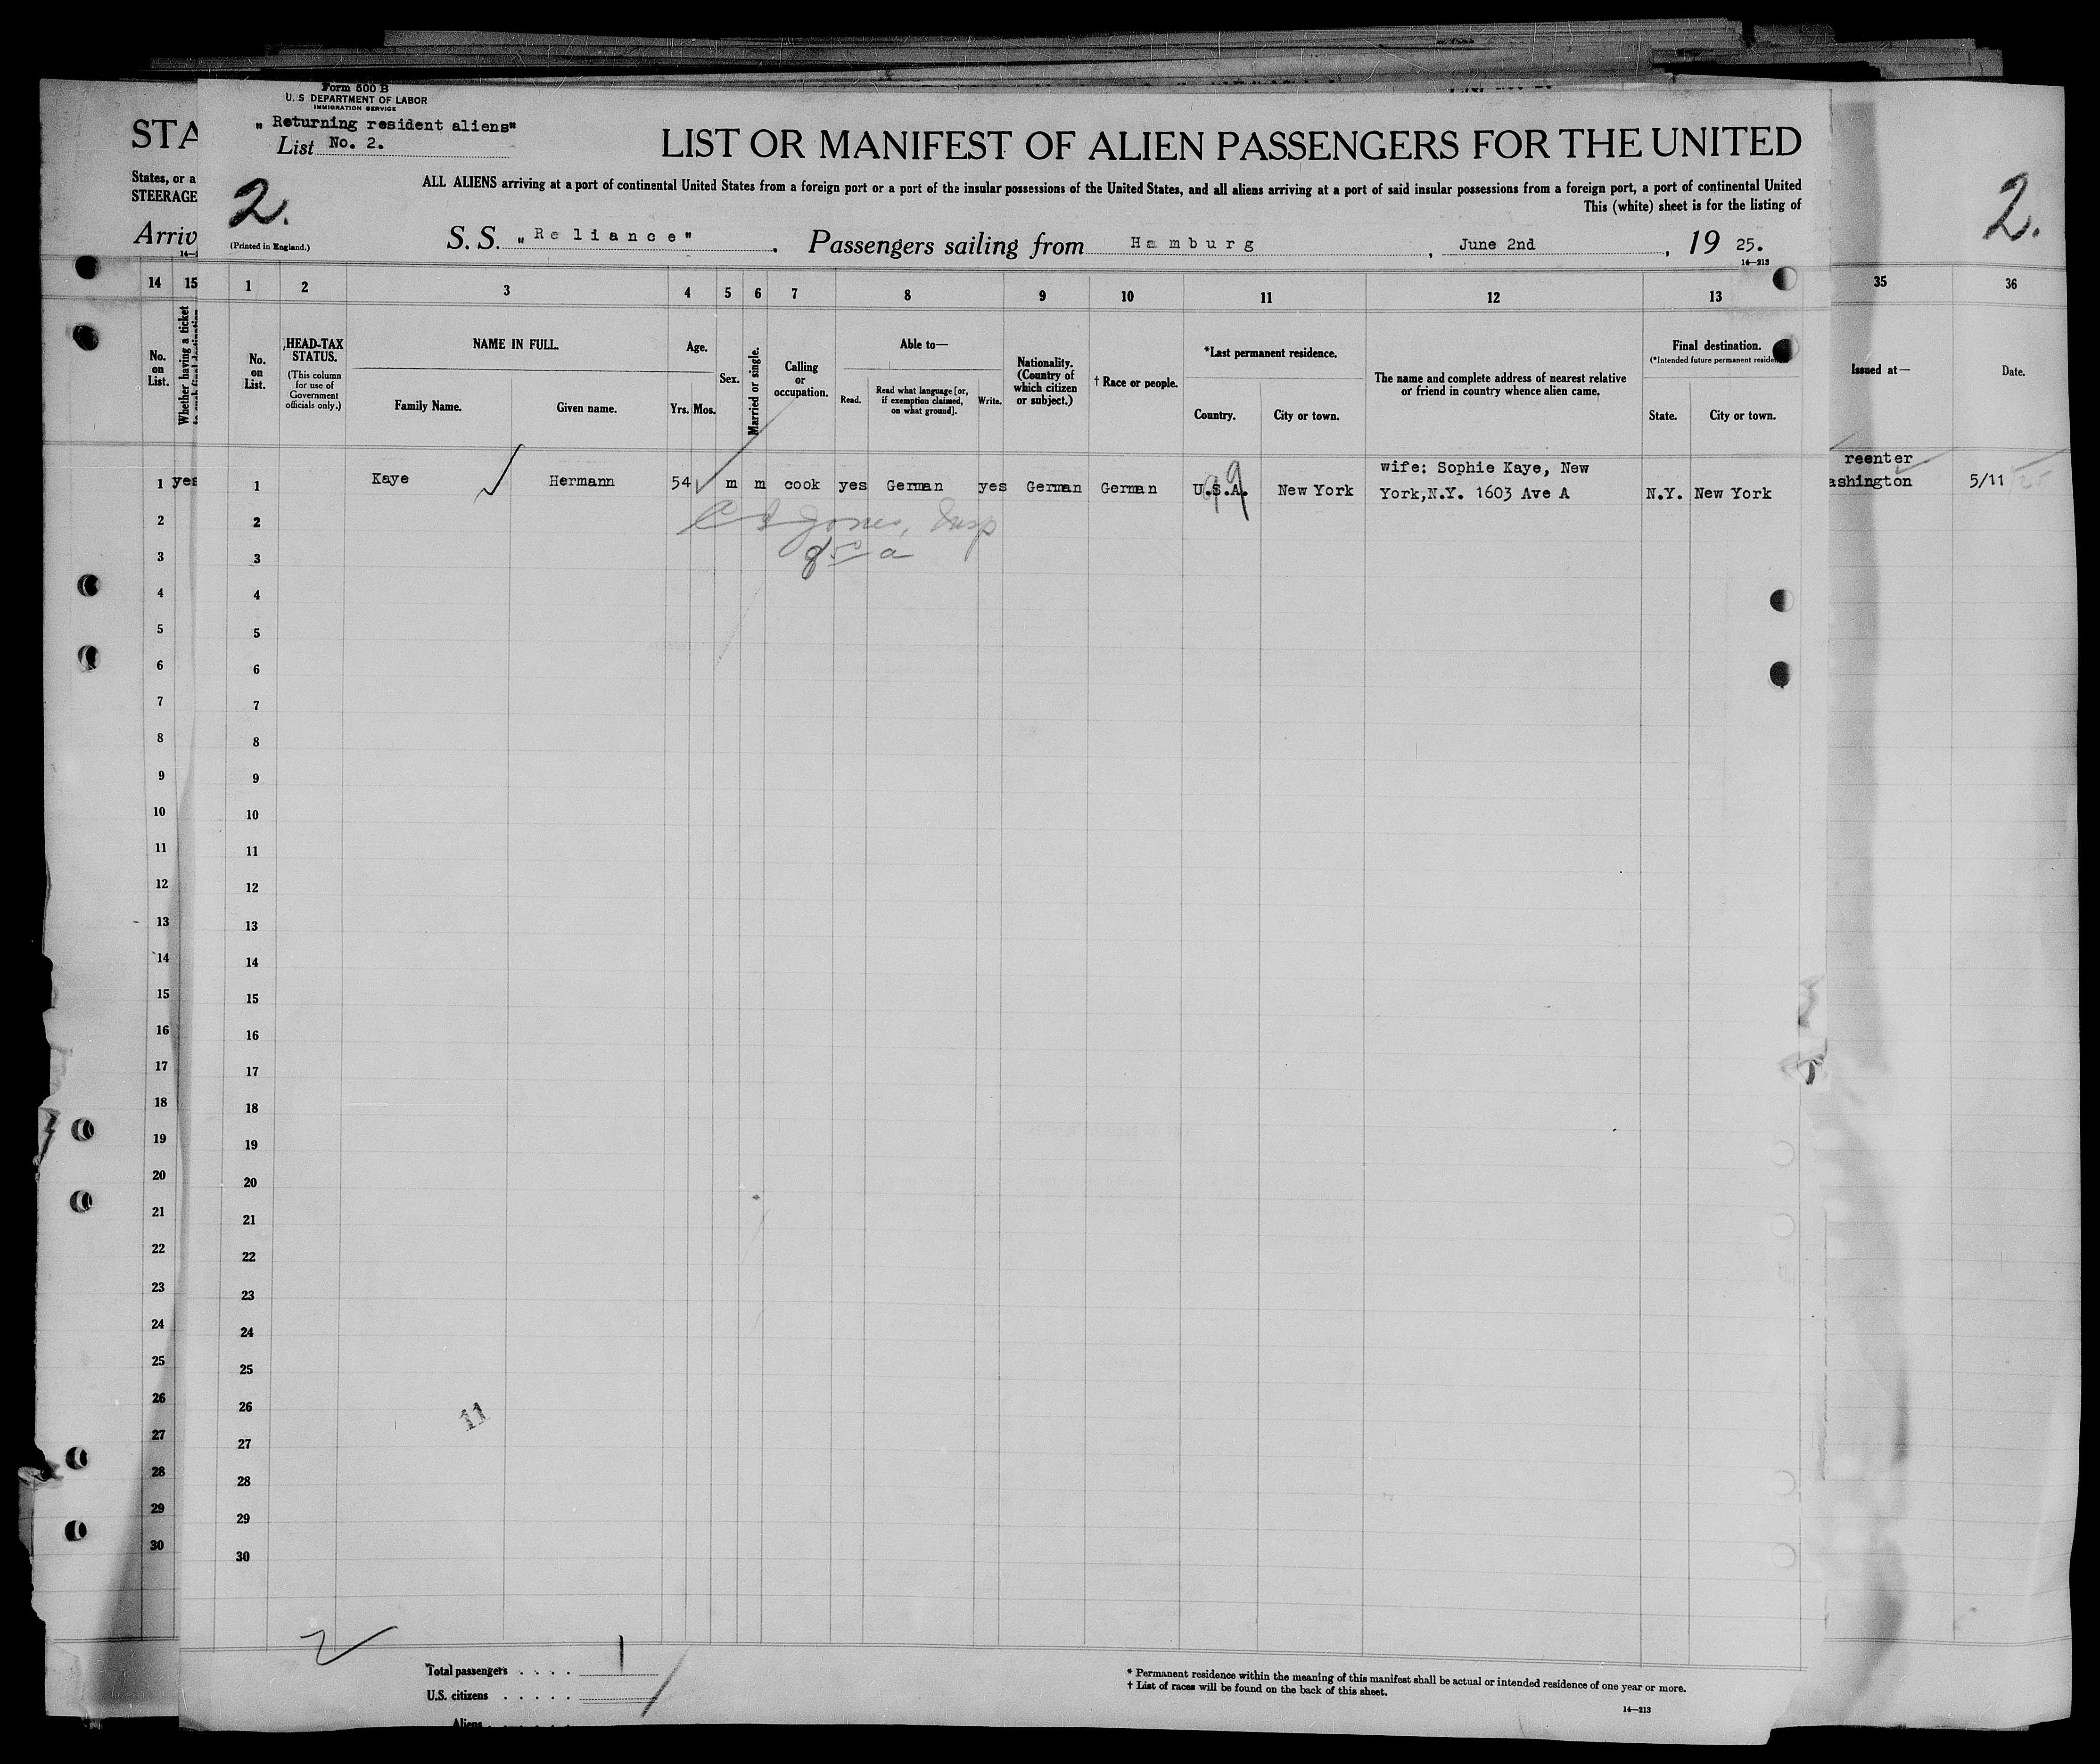 Form 500 B
U. S DEPARTMENT OF LABOR
IMMIGRATION SERVICE
„ Returning resident aliens"
List No. 2.
2.
(Printed in England.)
LIST OR MANIFEST OF ALIEN PASSENGERS FOR THE UNITED
ALL ALIENS arriving at a port of continental United States from a foreign port or a port of the insular possessions of the United States, and all aliens arriving at a port of said insular possessions from a foreign port, a port of continental United
This (white) sheet is for the listing of
S. S. „Reliance". Passengers sailing from Hamburg, June 2nd, 19 25.
14—213
STA
States, or a
STEERAGE
Arriv
2.
14 15 1 2 3 4 5 6 7 8 9 10 11 12 13 35 36
No. on List.
Whether having a ticket
No. on List.
HEAD-TAX STATUS.
(This column for use of Government officials only.)
NAME IN FULL.
Family Name. Given name.
Age.
Yrs. Mos.
Sex.
Married or single.
Calling or occupation.
Able to—
Read. Read what language [or, if exemption claimed, on what ground]. Write.
Nationality. (Country of which citizen or subject.)
† Race or people.
*Last permanent residence.
Country. City or town.
The name and complete address of nearest relative or friend in country whence alien came.
Final destination.
(*Intended future permanent
State. City or town.
Issued at—
Date.
1 yes 1 Kaye Hermann 54 m m cook yes German yes German German U.S.A. New York wife: Sophie Kaye, New York,N.Y. 1603 Ave A N.Y. New York
reenter
ashington 5/11 25
99
Jones, Insp
2 2
3 3
4 4
5 5
6 6
7 7
8 8
9 9
10 10
11 11
12 12
13 13
14 14
15 15
16 16
17 17
18 18
19 19
20 20
21 21
22 22
23 23
24 24
25 25
26 26
11
27 27
28 28
29 29
30 30
Total passengers . . . . 1
U.S. citizens . . . . .
Aliens . . . . . .
* Permanent residence within the meaning of this manifest shall be actual or intended residence of one year or more.
† List of races will be found on the back of this sheet.
14—213